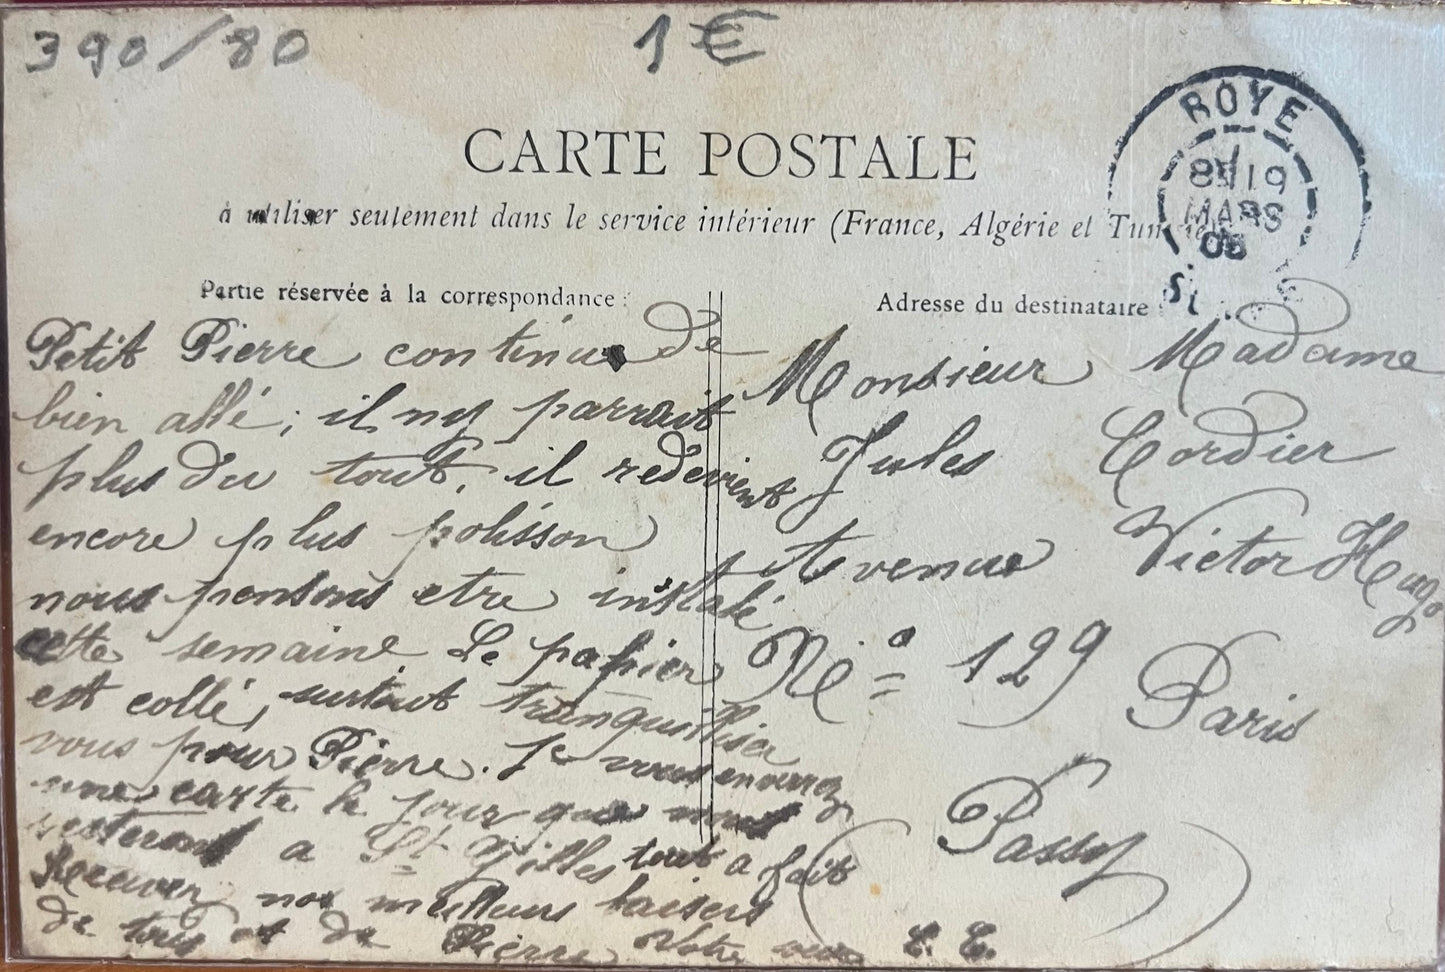 390/80
1€
CARTE POSTALE
à utiliser seulement dans le service intérieur (France, Algérie et Tunisie
ROYE
19
MARS
Partie réservée à la correspondance :
Adresse du destinataire
Petit Pierre continue de
bien allé; il ny parrait
plus du tout, il redevient
encore plus polisson
nous pensons etre instalé
cette semaine Le papier
est collé, surtout tranquilliser
vous pour Pierre. Je vous
une carte le jour que nous
resterons a St Gilles tout a fait
Recever nos meilleurs baisers
de tous et de Pierre Votre
Monsieur Madame
Jules Cordier
Avenue Victor Hugo
No = 129
Paris
(Passy)